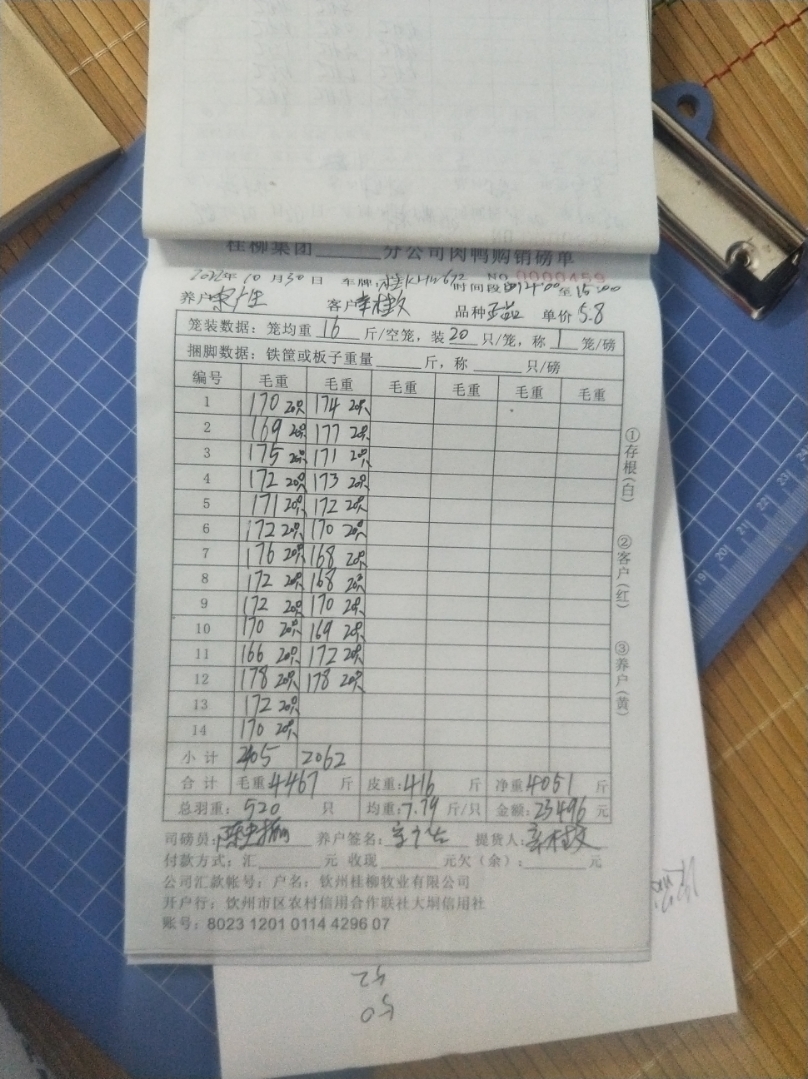 桂柳集团______分公司肉鸭购销磅单
2022年10月30日 车牌: NO 0000459
时间段 至15:00
养户 客户 品种 单价5.8
笼装数据：笼均重 16 斤/空笼，装 20 只/笼，称 1 笼/磅
捆脚数据：铁筐或板子重量______斤，称______只/磅
编号 毛重 毛重 毛重 毛重 毛重 毛重
1 170 20只 174 20只
2 169 20只 177 20只
3 175 20只 171 20只
4 172 20只 173 20只
5 171 20只 172 20只
6 172 20只 170 20只
7 176 20只 168 20只
8 172 20只 168 20只
9 172 20只 170 20只
10 170 20只 169 20只
11 166 20只 172 20只
12 178 20只 178 20只
13 172 20只
14 170 20只
小计 2405 2062
合计 毛重4467斤 皮重:416斤 净重4051斤
总羽重：520只 均重:7.79斤/只 金额:23496元
司磅员: 养户签名: 提货人:
付款方式：汇______元 收现______元欠（余）:______元
公司汇款帐号：户名：钦州桂柳牧业有限公司
开户行：钦州市区农村信用合作联社大垌信用社
账号：8023 1201 0114 4296 07
①存根(白)
②客户(红)
③养户(黄)